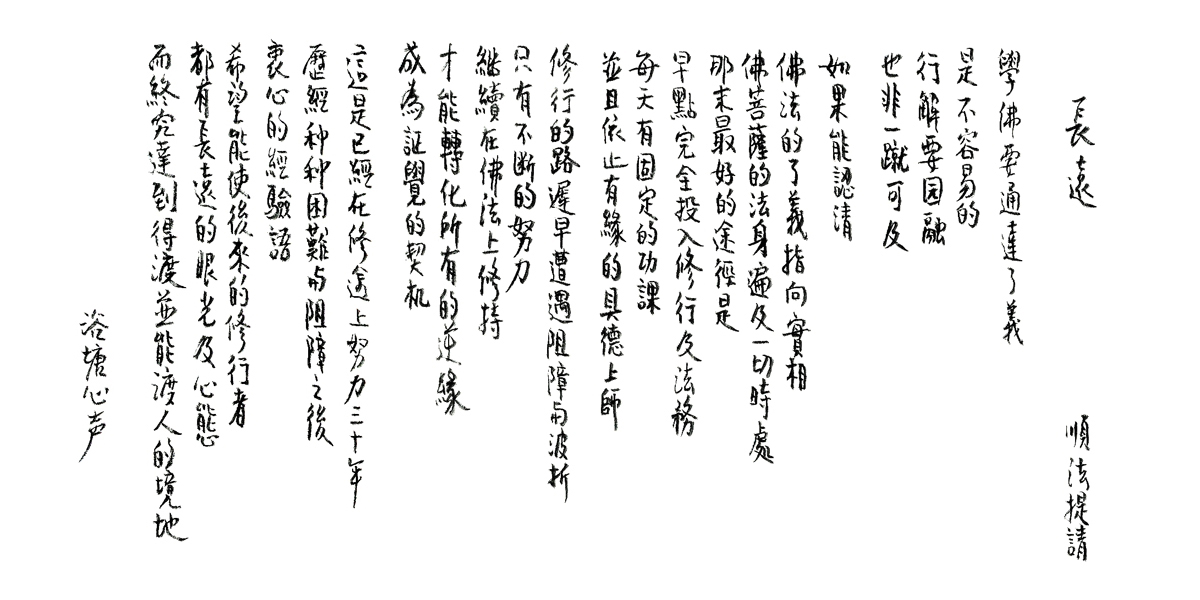 長遠
順法提請
學佛要通達了義
是不容易的
行解要圓融
也非一蹴可及
如果能認清
佛法的了義指向實相
佛菩薩的法身遍及一切時處
那末最好的途徑是
早點完全投入修行及法務
每天有固定的功課
並且依止有緣的具德上師
修行的路遲早遭遇阻障与波折
只有不断的努力
繼續在佛法上修持
才能轉化所有的逆緣
成為証覺的契机
這是已經在修途上努力三十年
歷經种种困難与阻障之後
衷心的經驗語
希望能使後來的修行者
都有長遠的眼光及心態
而終究達到得渡並能渡人的境地
浴塘心声